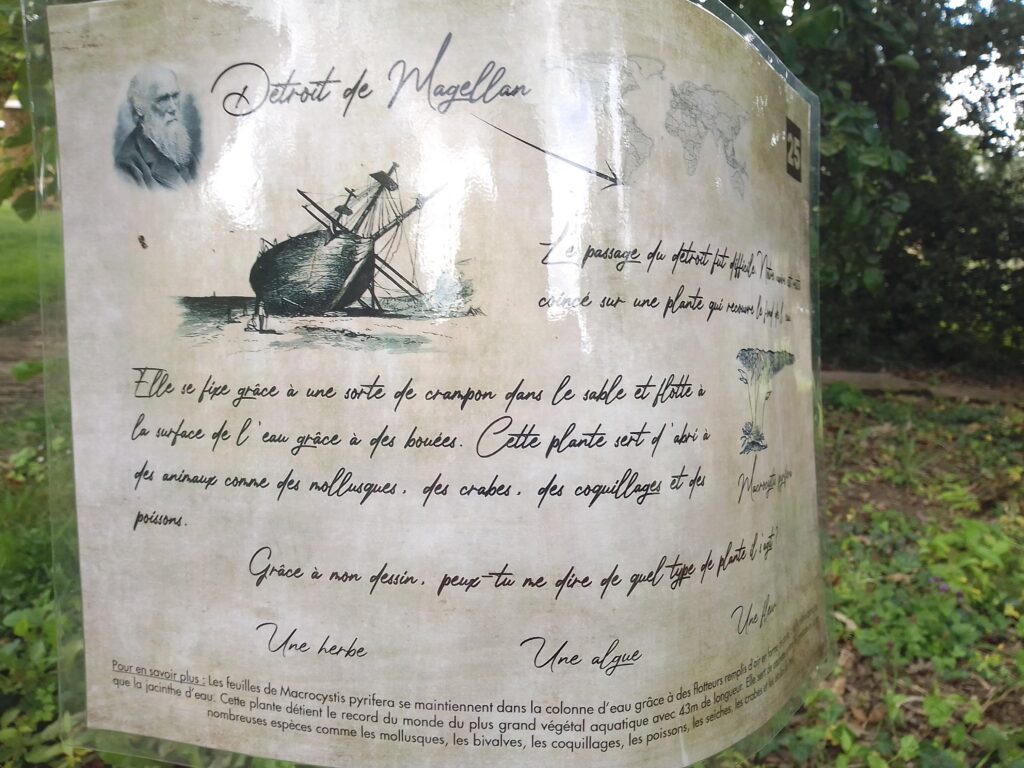 Détroit de Magellan
25
Le passage du détroit fut difficile. Notre
coincé sur une plante qui recouvre le fond de l'eau
Elle se fixe grâce à une sorte de crampon dans le sable et flotte à
la surface de l'eau grâce à des bouées. Cette plante sert d'abri à
des animaux comme des mollusques, des crabes, des coquillages et des
poissons.
Macrocystis pyrifera
Grâce à mon dessin, peux-tu me dire de quel type de plante il s'agit?
Une herbe
Une algue
Une fleur
Pour en savoir plus : Les feuilles de Macrocystis pyrifera se maintiennent dans la colonne d'eau grâce à des flotteurs remplis d'air en forme
que la jacinthe d'eau. Cette plante détient le record du monde du plus grand végétal aquatique avec 43m de longueur. Elle sert de
nombreuses espèces comme les mollusques, les bivalves, les coquillages, les poissons, les seiches, les crabes et les